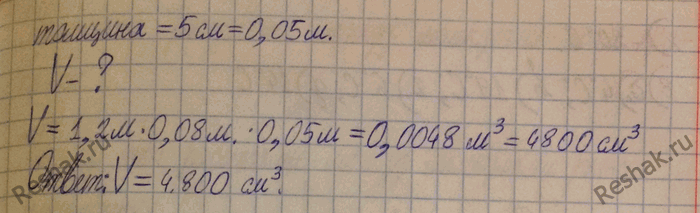 толщина = 5 см = 0,05 м.
V - ?
V = 1,2 м · 0,08 м. · 0,05 м = 0,0048 м³ = 4800 см³
Ответ: V = 4.800 см³.
Reshak.ru
Reshak.ru